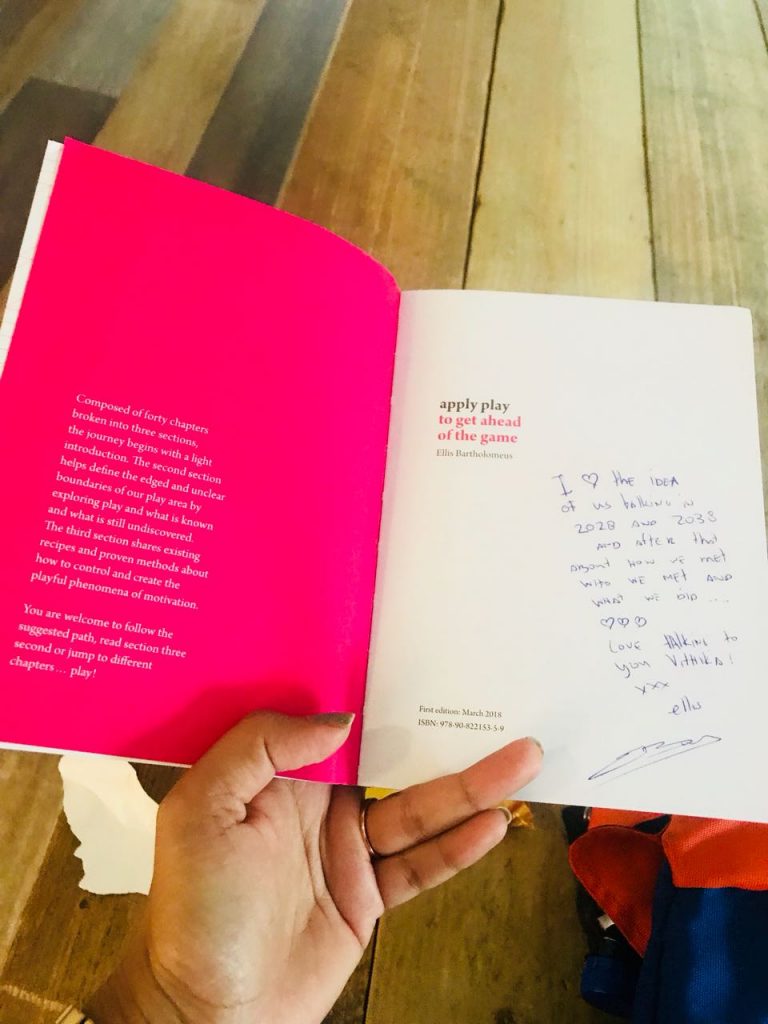 Composed of forty chapters
broken into three sections,
the journey begins with a light
introduction. The second section
helps define the edged and unclear
boundaries of our play area by
exploring play and what is known
and what is still undiscovered.
The third section shares existing
recipes and proven methods about
how to control and create the
playful phenomena of motivation.
You are welcome to follow the
suggested path, read section three
second or jump to different
chapters... play!
apply play
to get ahead
of the game
Ellis Bartholomeus
I ♡ the IDEA
of us talking in
2028 AND 2038
AND AFTER that
about How we met
who we met AND
what we did ....
♡♡♡
Love talking to
you Vithika!
xxx
ellis
First edition: March 2018
ISBN: 978-90-822153-5-9